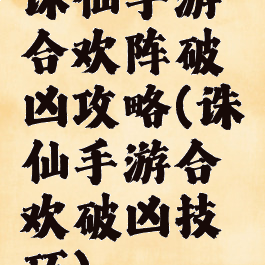 诛仙手游
合欢阵破
凶攻略(诛
仙手游合
欢破凶技
巧)